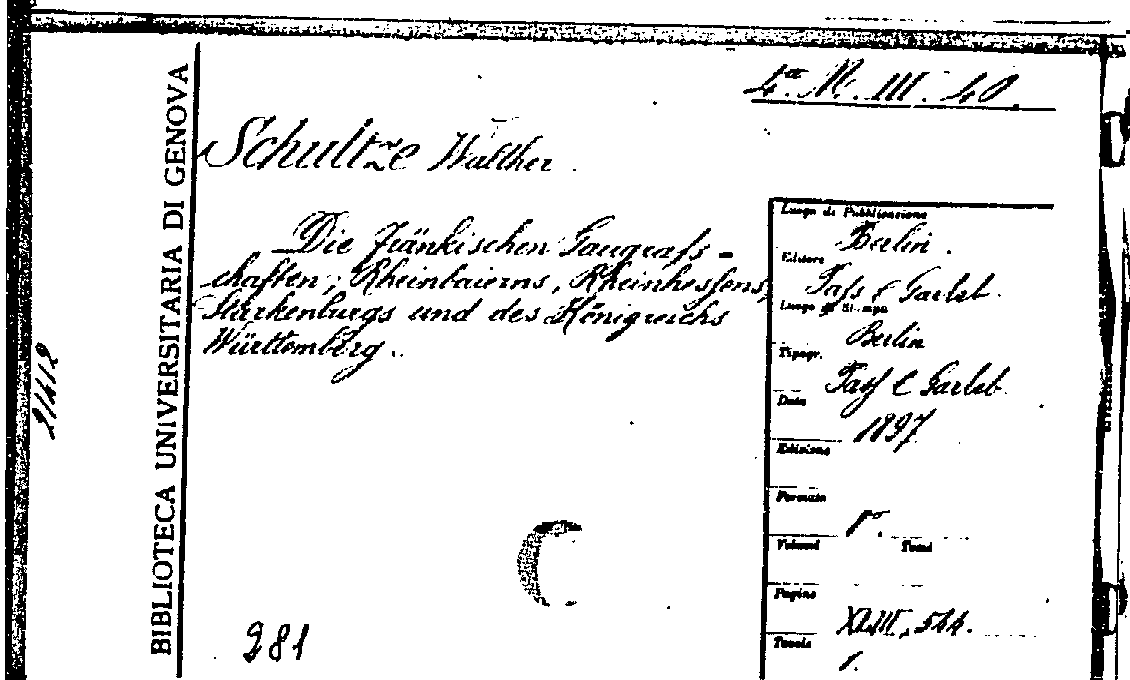 4ª. N. III. 40.
BIBLIOTECA UNIVERSITARIA DI GENOVA
21412
Schultze Walther.
Die Fränkischen Gaugrafs-
chaften, Rheinbaierns, Rheinhessens,
Starkenburgs und des Königreichs
Württemberg.
281
Luogo di Pubblicazione
Berlin.
Editore
& Garleb.
Luogo di Stampa
Berlin
Tipogr.
& Garleb
Data
1897
Edizione
Formato
Volumi Tomi
Pagine
XLIII, 544.
Tavole
1.